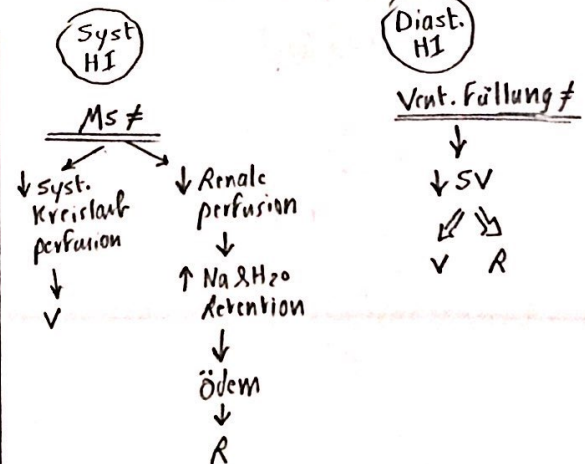 Syst
HI
Ms ≠
↓ Syst.
Kreislauf
perfusion
↓
V
↓ Renale
perfusion
↓
↑ Na & H2O
Retention
↓
Ödem
↓
R
Diast.
HI
Vent. Füllung ≠
↓
↓ SV
V R